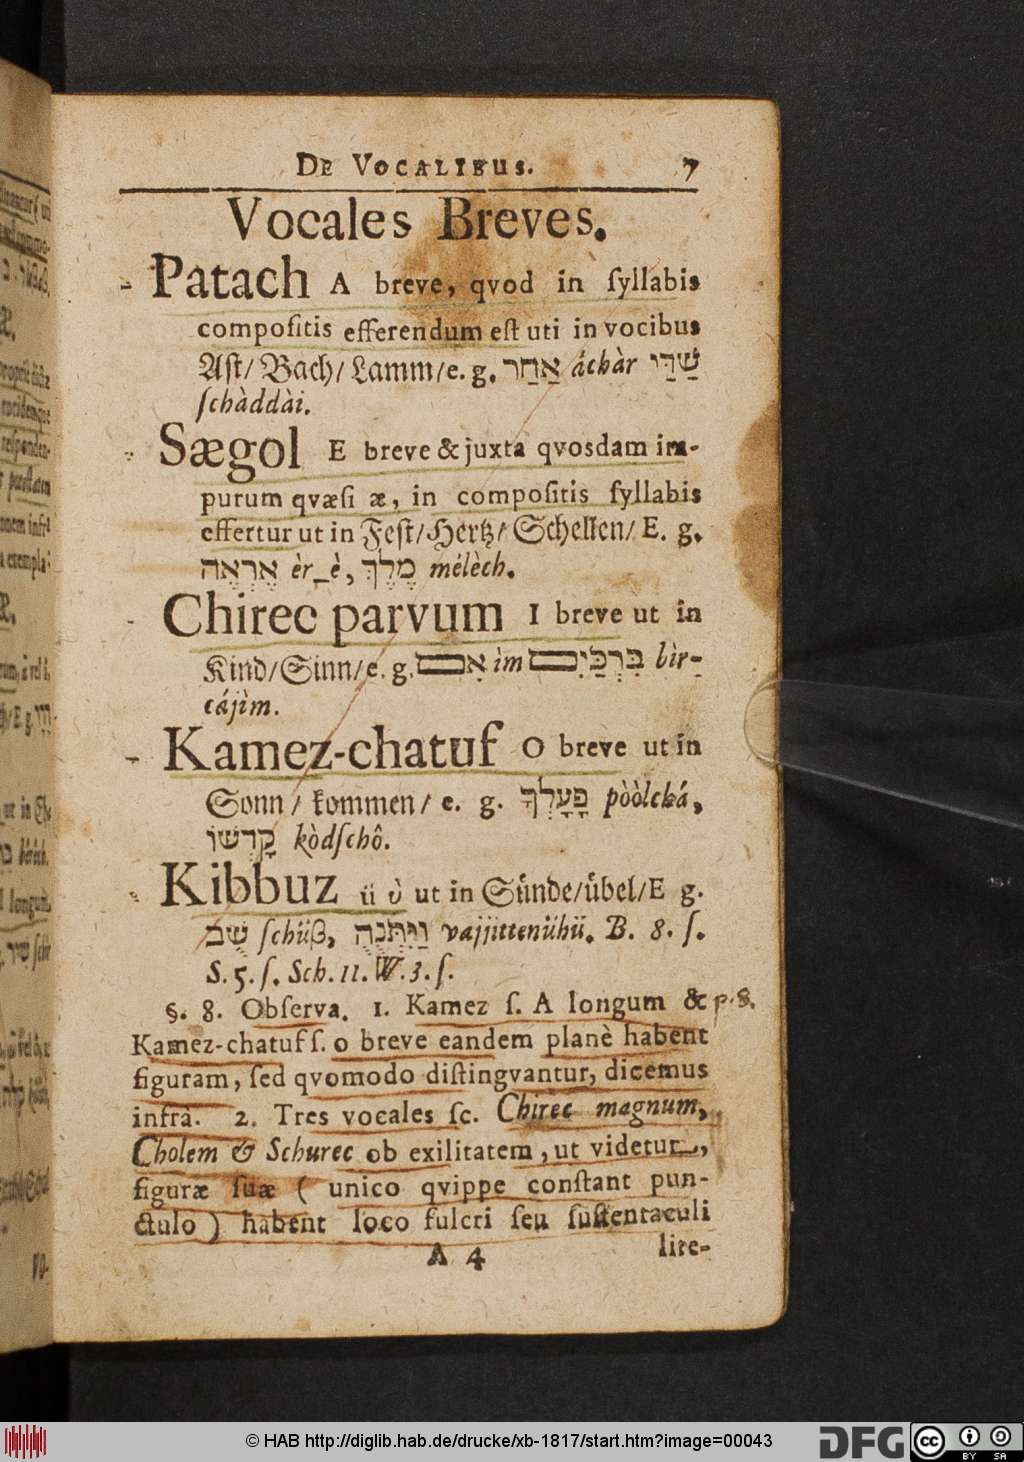 De Vocalibus. 7
Vocales Breves.
Patach A breve, qvod in ſyllabis
compoſitis efferendum eſt uti in vocibus
Aſt/ Bach/ Lamm/ e. g. אַחַר áchàr שַׁדַּי
ſchàddài.
Sægol E breve & juxta qvosdam im-
purum qvæſi æ, in compoſitis ſyllabis
effertur ut in Feſt/ Hertz/ Schellen/ E. g.
אֶרְאֶה èr_è, מֶלֶךְ mélèch.
Chirec parvum I breve ut in
Kind/ Sinn/ e. g. אִם ìm בִּרְכַּיִם bìr-
cájìm.
Kamez-chatuf O breve ut in
Sonn/ kommen/ e. g. פָּעָלְךָ pòòlcká,
קָדְשׁוֹ kòdſchô.
Kibbuz ü ù ut in Sünde/ übel/ E g.
ſchüß, vajjittenühü. B. 8. ſ.
S. 5. ſ. Sch. 11. W. 3. ſ.
§. 8. Obſerva. 1. Kamez ſ. A longum & p. 8.
Kamez-chatuf ſ. o breve eandem planè habent
figuram, ſed qvomodo diſtingvantur, dicemus
infrà. 2. Tres vocales ſc. Chirec magnum,
Cholem & Schurec ob exilitatem, ut videtur,
figuræ ſuæ ( unico qvippe conſtant pun-
ctulo ) habent loco fulcri ſeu ſuſtentaculi
A 4 lite-
© HAB http://diglib.hab.de/drucke/xb-1817/start.htm?image=00043
DFG
cc
BY SA